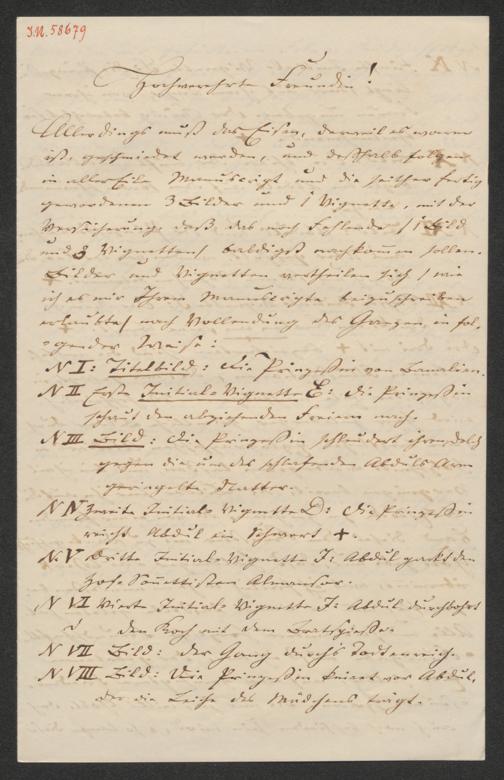 I.N. 58679
Hochverehrte Freundin!
Allerdings muß das Eisen, derweil es warm
ist, geschmiedet werden, und deßhalb folgen
in aller Eile Manuscript und die seither fertig
gewordenen 3 Bilder und 1 Vignette, mit der
Versicherung, daß das noch Fehlende /1 Bild
und 3 Vignetten/ baldigst nachkommen sollen.
Bilder und Vignetten vertheilen sich / wie
ich es mir Ihrem Manuscripte beizuschreiben
erlaubte/ nach Vollendung des Ganzen in fol-
gender Weise:
N I: Titelbild: Die Prinzeßin von Banalien.
N II Erste Initial-Vignette E: Die Prinzeßin
schaut den abziehenden Freiern nach.
N III Bild: Die Prinzeßin schleudert ihren Dolch
gegen die um des schlafenden Abduls Arm
geringelte Natter.
N IV Zweite Initial-Vignette D: Die Prinzeßin
reicht Abdul ein Schwert +.
N. V Dritte Initial-Vignette J: Abdul packt den
Hof-Sonettisten Almansor.
N VI Vierte Initial-Vignette J: Abdul durchbohrt
den Koch mit dem Bratspieße.
N VII Bild: Der Gang durch's Todtenreich.
N. VIII Bild: Die Prinzeßin kniet vor Abdul,
der die Leiche des Mädchens trägt.